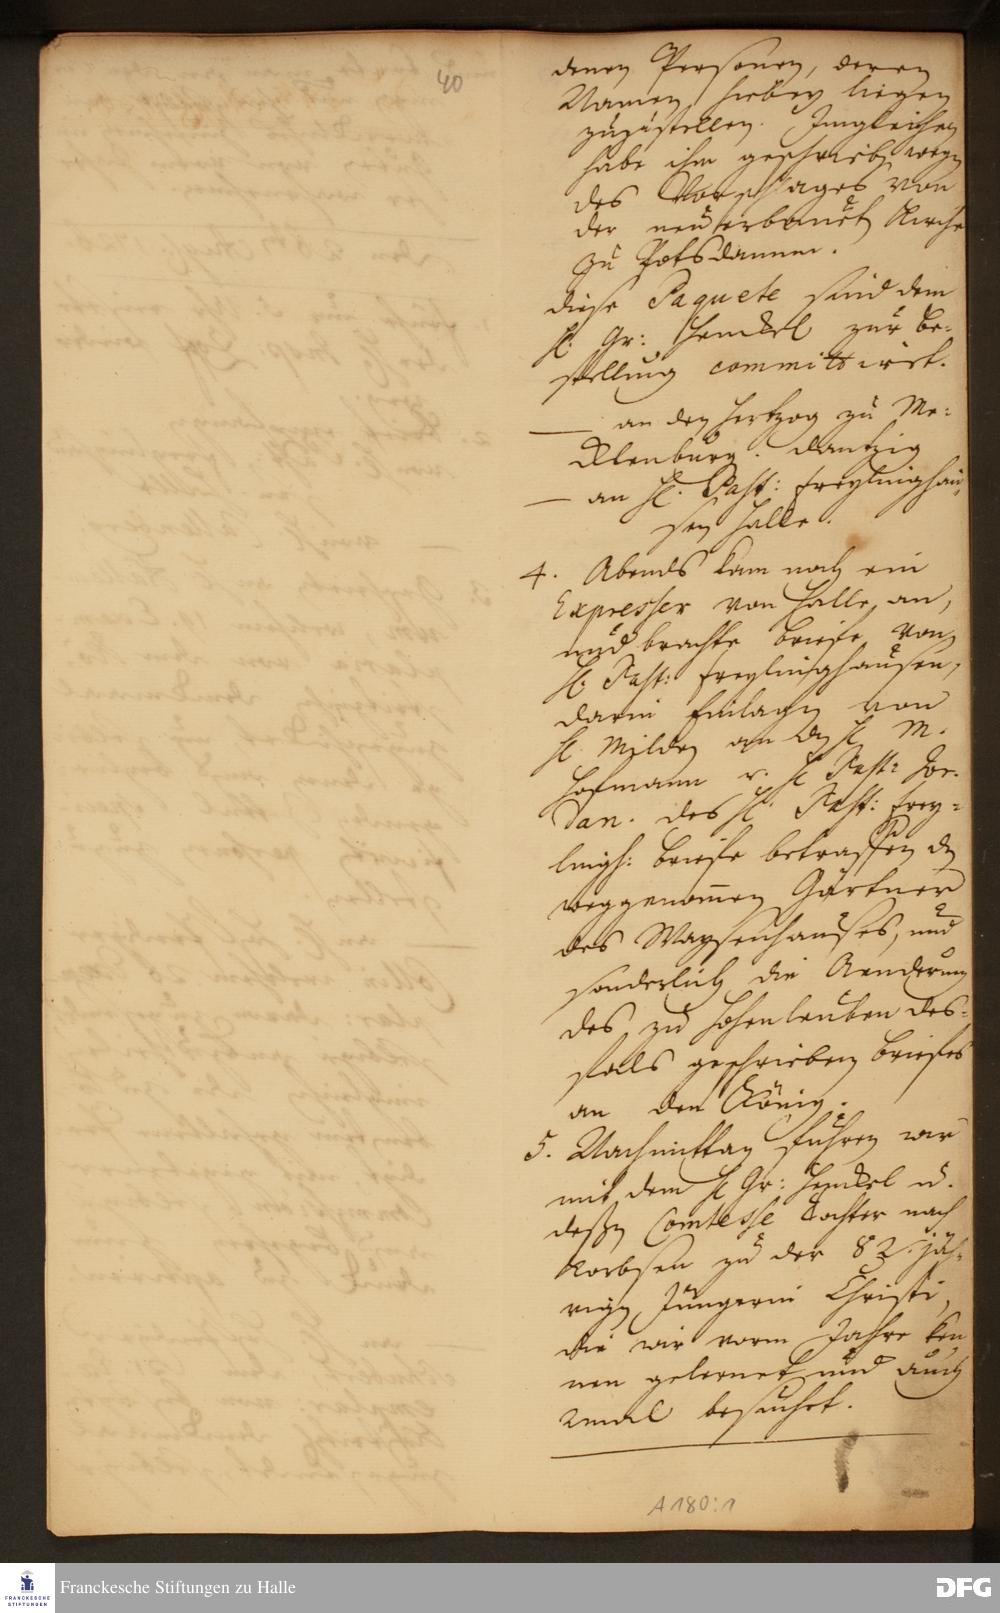 40
denen Personen, deren
Namen hiebey liegen
zuzustellen. Imgleichen
habe ihm geschrieben wegen
des Vorschlages von
der neu erbauet Kirche
zu Potsdamm.
diese Paquete sind dem
H. Gr: Henckel zur be-
stellung committiret.
— an den Hertzog zu Me-
cklenburg. Dantzig
— an H. Past: Freylinghau-
sen Halle.
4. Abends kam noch ein
Expresser von Halle an,
und brachte briefe von
H. Past: Freylinghausen,
darin Einlagen von
H. Milden an den H. M.
Hofmann u. H Past: Jor-
dan. des H. Past: Frey-
lingh: briefe betraffen den
weggenom̄en Gärtner
des Waysenhauses, und
sonderlich die Aenderung
des zu Hohenleuben des-
fals geschrieben briefes
an den König.
5. Nachmittag fuhren wir
mit dem H Gr: Henckel u.
deßen Comtesse Tochter nach
Korbsen zu der 82 jäh-
rigen Jüngerin Christi,
die wir vorm Jahre ken
nen gelernet und auch
2mal besuchet.
A 180:1
FRANCKESCHE
STIFTUNGEN
Franckesche Stiftungen zu Halle
DFG